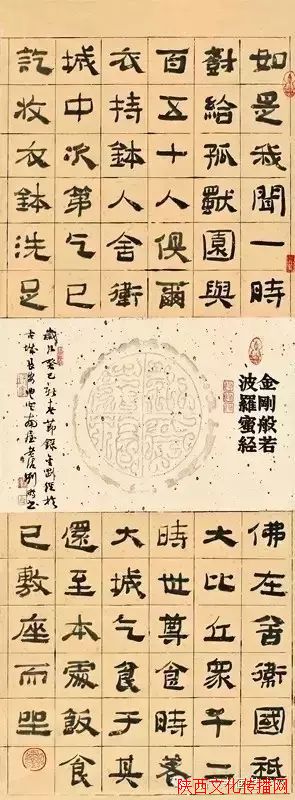 如是我聞一時
對給孤獸園與
百五十人俱爾
衣持鉢入舍衛
城中次第乞已
訖收衣鉢洗足
金剛般若
波羅蜜經
歲次癸巳 節錄金剛經於
古城長安
佛在舍衛國祇
大比丘衆千二
時世尊食時著
大城乞食于其
還至本處飯食
已敷座而坐
陕西文化传播网